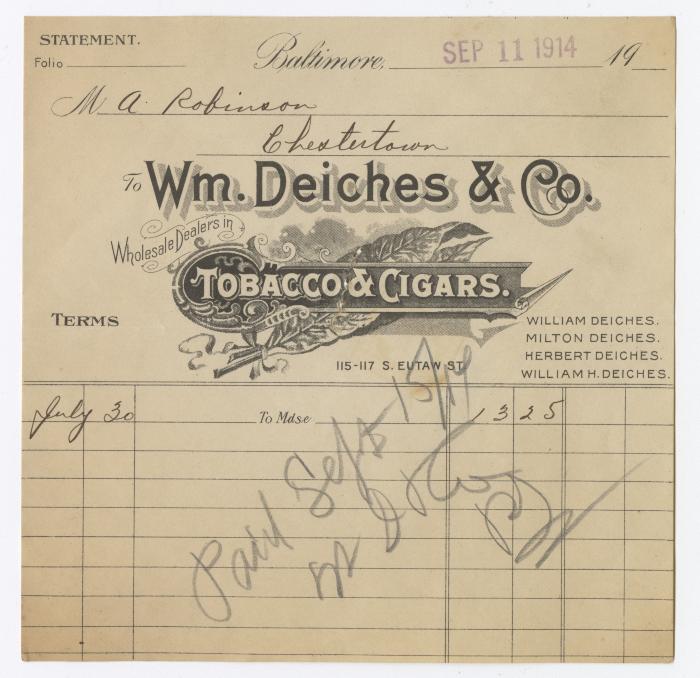 STATEMENT.
Folio
Baltimore, SEP 11 1914 19
M A. Robinson
Chestertown
To Wm. Deiches & Co.
Wholesale Dealers in
TOBACCO & CIGARS.
TERMS
115-117 S. EUTAW ST.
WILLIAM DEICHES.
MILTON DEICHES.
HERBERT DEICHES.
WILLIAM H. DEICHES.
July 30 To Mdse 13 25
Paid Sept 15/14